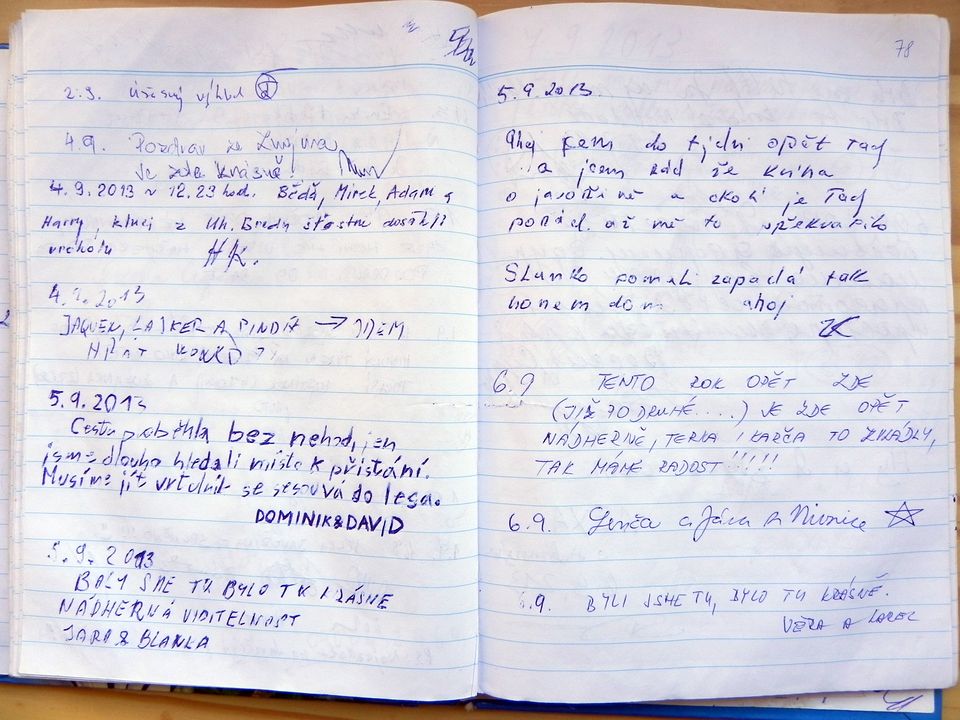 78
2.9. Úžasný výhled
4.9. Pozdrav ze
Je zde krásně!
4.9.2013 v 12.23 hod. Béďa, Mirek, Adam a
Harry, kluci z Uh. Brodu šťastně dosáhli
vrcholu HK.
4.9.2013
LASKER A PINĎA → JDEM
HRÁT
5.9.2013
Cesta proběhla bez nehod, jen
jsme dlouho hledali místo k přistání.
Musíme jít vrtulník se sesouvá do lesa.
DOMINIK&DAVID
5.9.2013
BALY SME TU BYLO TU KRÁSNE
NÁDHERNÁ VIDITELNOST
JARA & BLANKA
5.9.2013
Ahoj sem do týdni opět tady
a jsem rád že kniha
o javořině a okolí je tady
pořád. až mě to překvapilo
Slunko pomali zapadá tak
honem domu ahoj
6.9 TENTO ROK OPĚT ZDE
(JIŽ PODRUHÉ....) JE ZDE OPĚT
NÁDHERNĚ, TERKA I KARČA TO ZVLÁDLY,
TAK MÁME RADOST!!!!!
6.9. a Jára z Nivnice
6.9. BYLI JSME TU, BYLO TU KRÁSNĚ.
VĚRA A KAREL